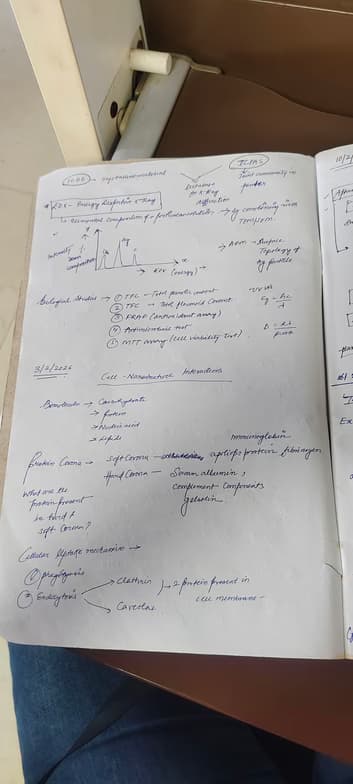 ICDD → 
Database for X-Ray diffraction
JCPDS
Joint community in powder
* EDX - Energy Dispersive X-Ray
→ Elemental composition of a
by combining with TEM/SEM
Intensity
Ag
KeV (energy) →
→ AFM → Surface Topology of Ag particle
Biological Studies → ① TPC - Total phenolic content
② TFC → Total flavonoid content
③ FRAP (antioxidant assay)
④ Antimicrobial test
⑤ MTT assay (cell viability test)
UV Vis
Eg = hc/λ
D = kλ/βcosθ
3/2/2026
Cell - Nanomaterial Interactions
Biomolecules → Carbohydrate
→ protein
→ Nucleic acid
→ Lipids
Protein Corona → Soft Corona → apolipoprotein fibrinogen
immunoglobulin
Hard Corona → Serum albumin,
complement components
gelsolin
What are the
protein present
in hard &
soft Corona?
Cellular uptake mechanism →
① phagocytosis
② Endocytosis → Clathrin
→ Caveolae
→ 2 protein present in
cell membrane -
10/2/